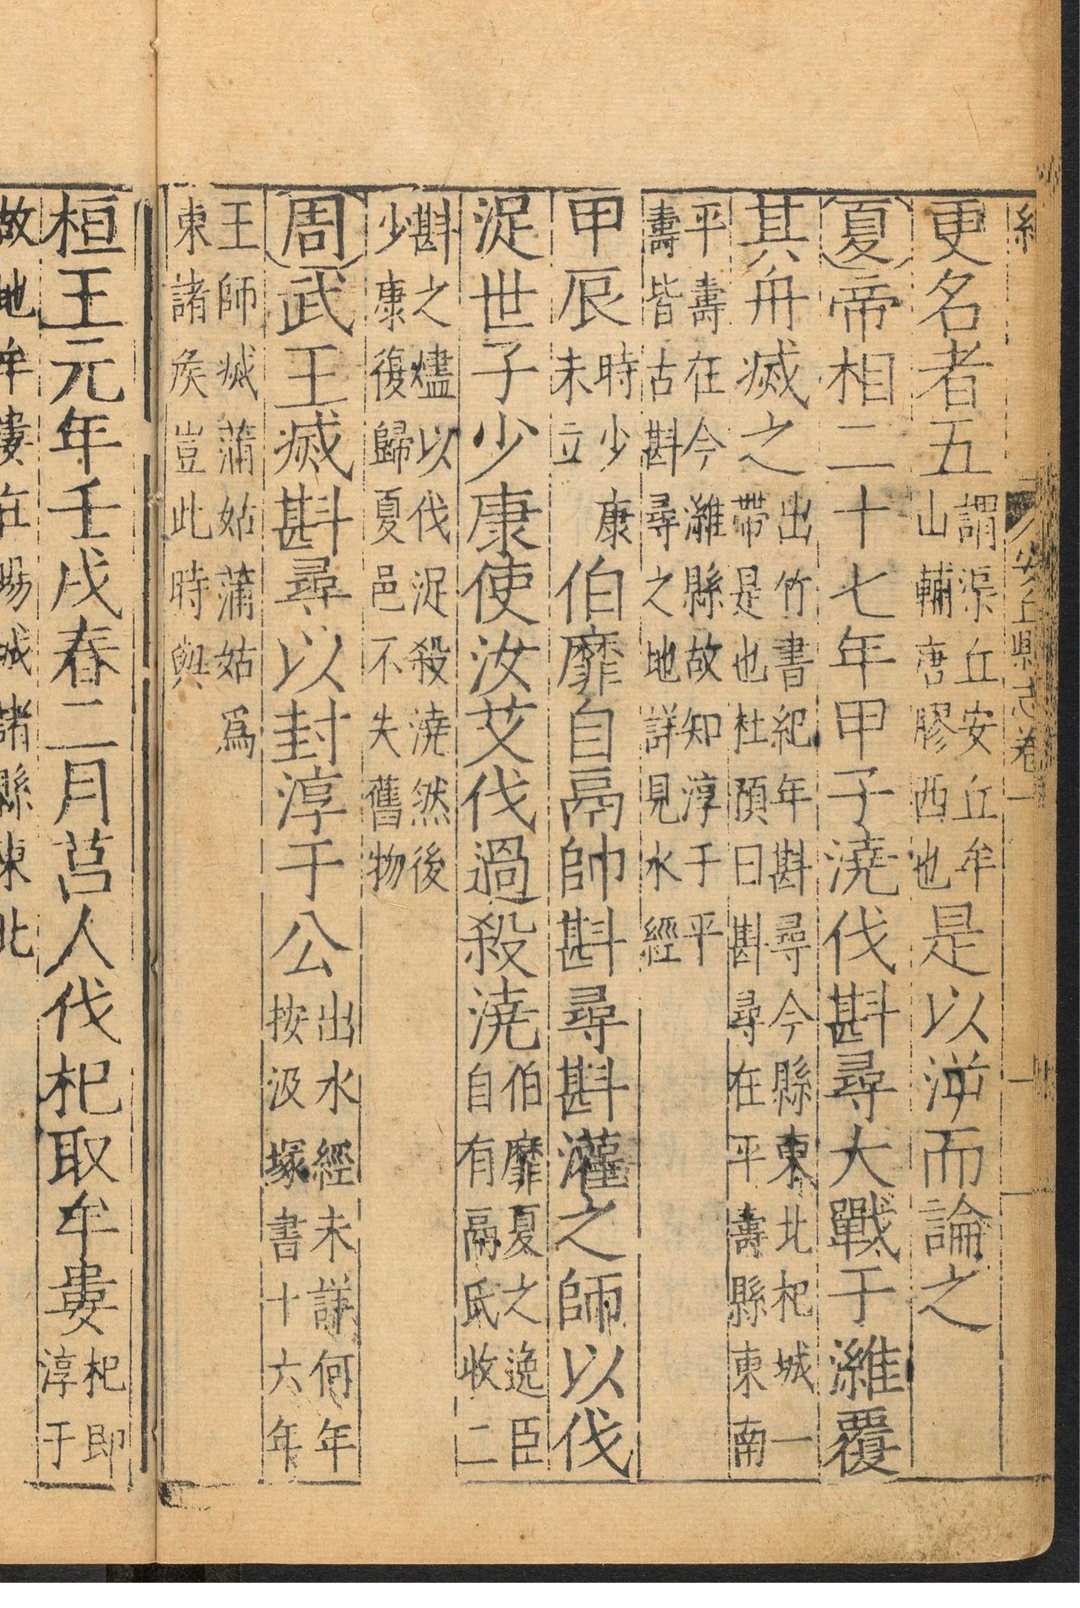 安丘縣志卷一
一
更名者五謂渠丘安丘牟
山輔唐膠西也是以逆而論之
夏帝相二十七年甲子澆伐斟尋大戰于濰覆
其舟滅之出竹書紀年斟尋今縣東北杞城一
帶是也杜預曰斟尋在平壽縣東南
平壽在今濰縣故知淳于平
壽皆古斟尋之地詳見水經
甲辰時少康
未立伯靡自鬲帥斟尋斟灌之師以伐
浞世子少康使汝艾伐過殺澆伯靡夏之逸臣
自有鬲氏收二
斟之燼以伐浞殺澆然後
少康復歸夏邑不失舊物
周武王滅斟尋以封淳于公出水經未詳何年
按汲塚書十六年
王師滅蒲姑蒲姑爲
東諸侯豈此時與
桓王元年壬戌春二月莒人伐杞取牟婁杞即
淳于
故地牟婁在城諸縣東北